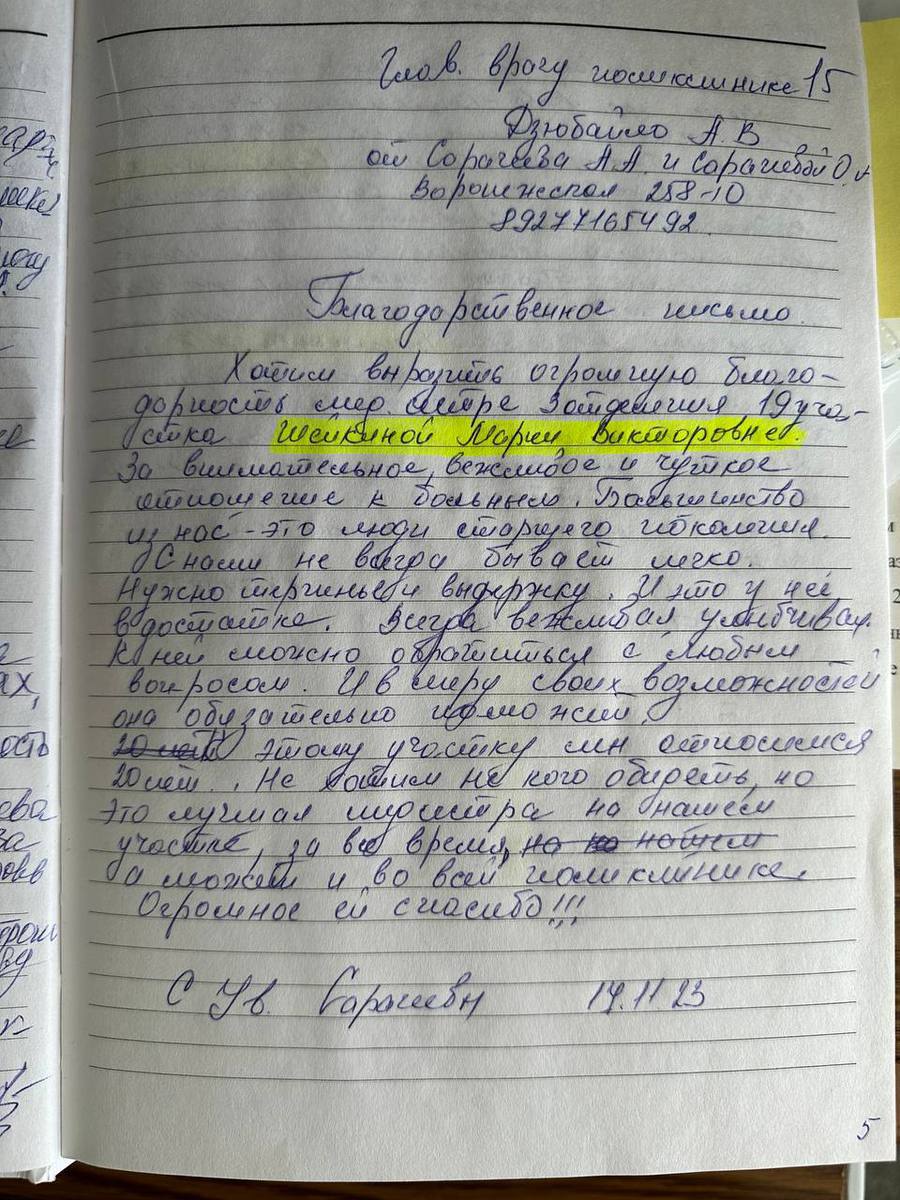 Глав. врачу поликлинике 15
Дзюбайло А.В
от Сорачева А.А. и Сорачевой О.А
Воронежская 258-10
89277165492
Благодарственное письмо.
Хотим выразить огромную благо-
дарность мед. сетре 3отделения 19 уча-
стка Шейкиной Марии Викторовне.
За внимательное, вежливое и чуткое
отношение к больным. Большинство
из нас - это люди старшего поколения.
С нами не всегда бывает легко.
Нужно терпенье и выдержку. И это у неё
в достатке. Всегда вежливая улыбчивая.
К ней можно обратиться с любым
вопросом. И в меру своих возможностей
она обязательно поможет.
20 лет этому участку мы относимся
20 лет. Не хотим не кого обидеть, но
это лучшая медсестра на нашем
участке, за всё время, на нашем
а может и во всей поликлинике.
Огромное ей спасибо!!!
С Ув. 14.11.23
5